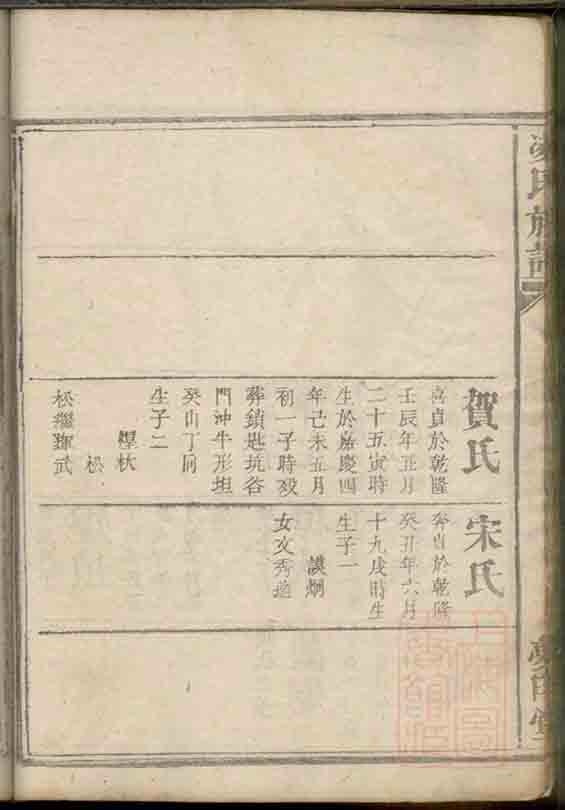 氏族譜
賀氏
喜貞於乾隆
壬辰年五月
二十五寅時
生於嘉慶四
年己未五月
初一子時歿
葬鎖匙坑谷
門沖牛形坦
癸山丁向
生子二
樫枤
松
松繼琿武
宋氏
奔貞於乾隆
癸丑年六月
十九戌時生
生子一
謨炯
女文秀適
堂